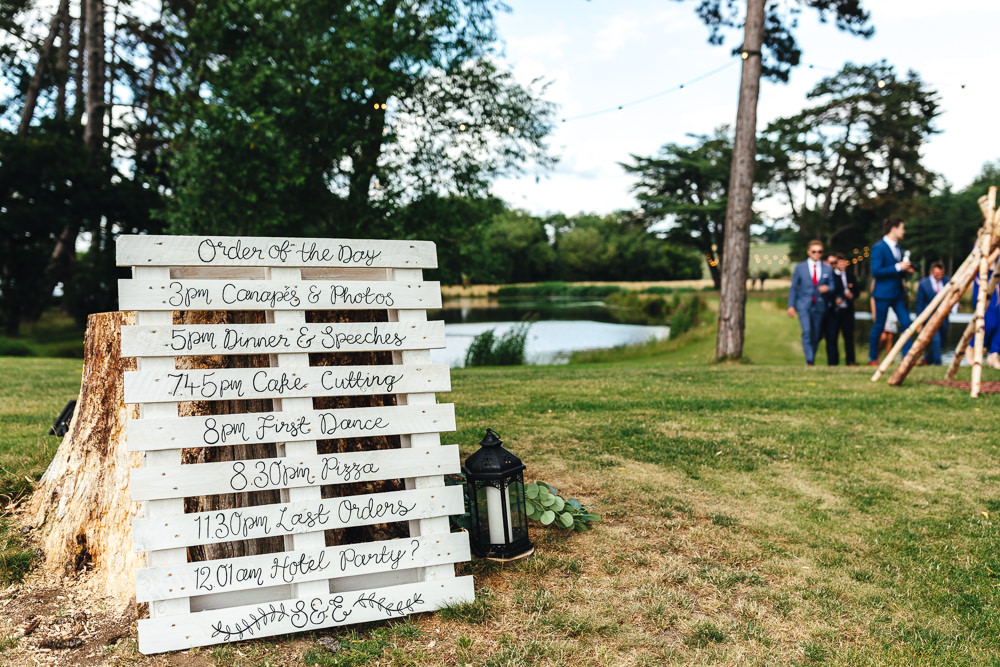 Order of the Day
3pm Canapés & Photos
5pm Dinner & Speeches
7.45pm Cake Cutting
8pm First Dance
8.30pm Pizza
11.30pm Last Orders
12.01am Hotel Party?
S&E